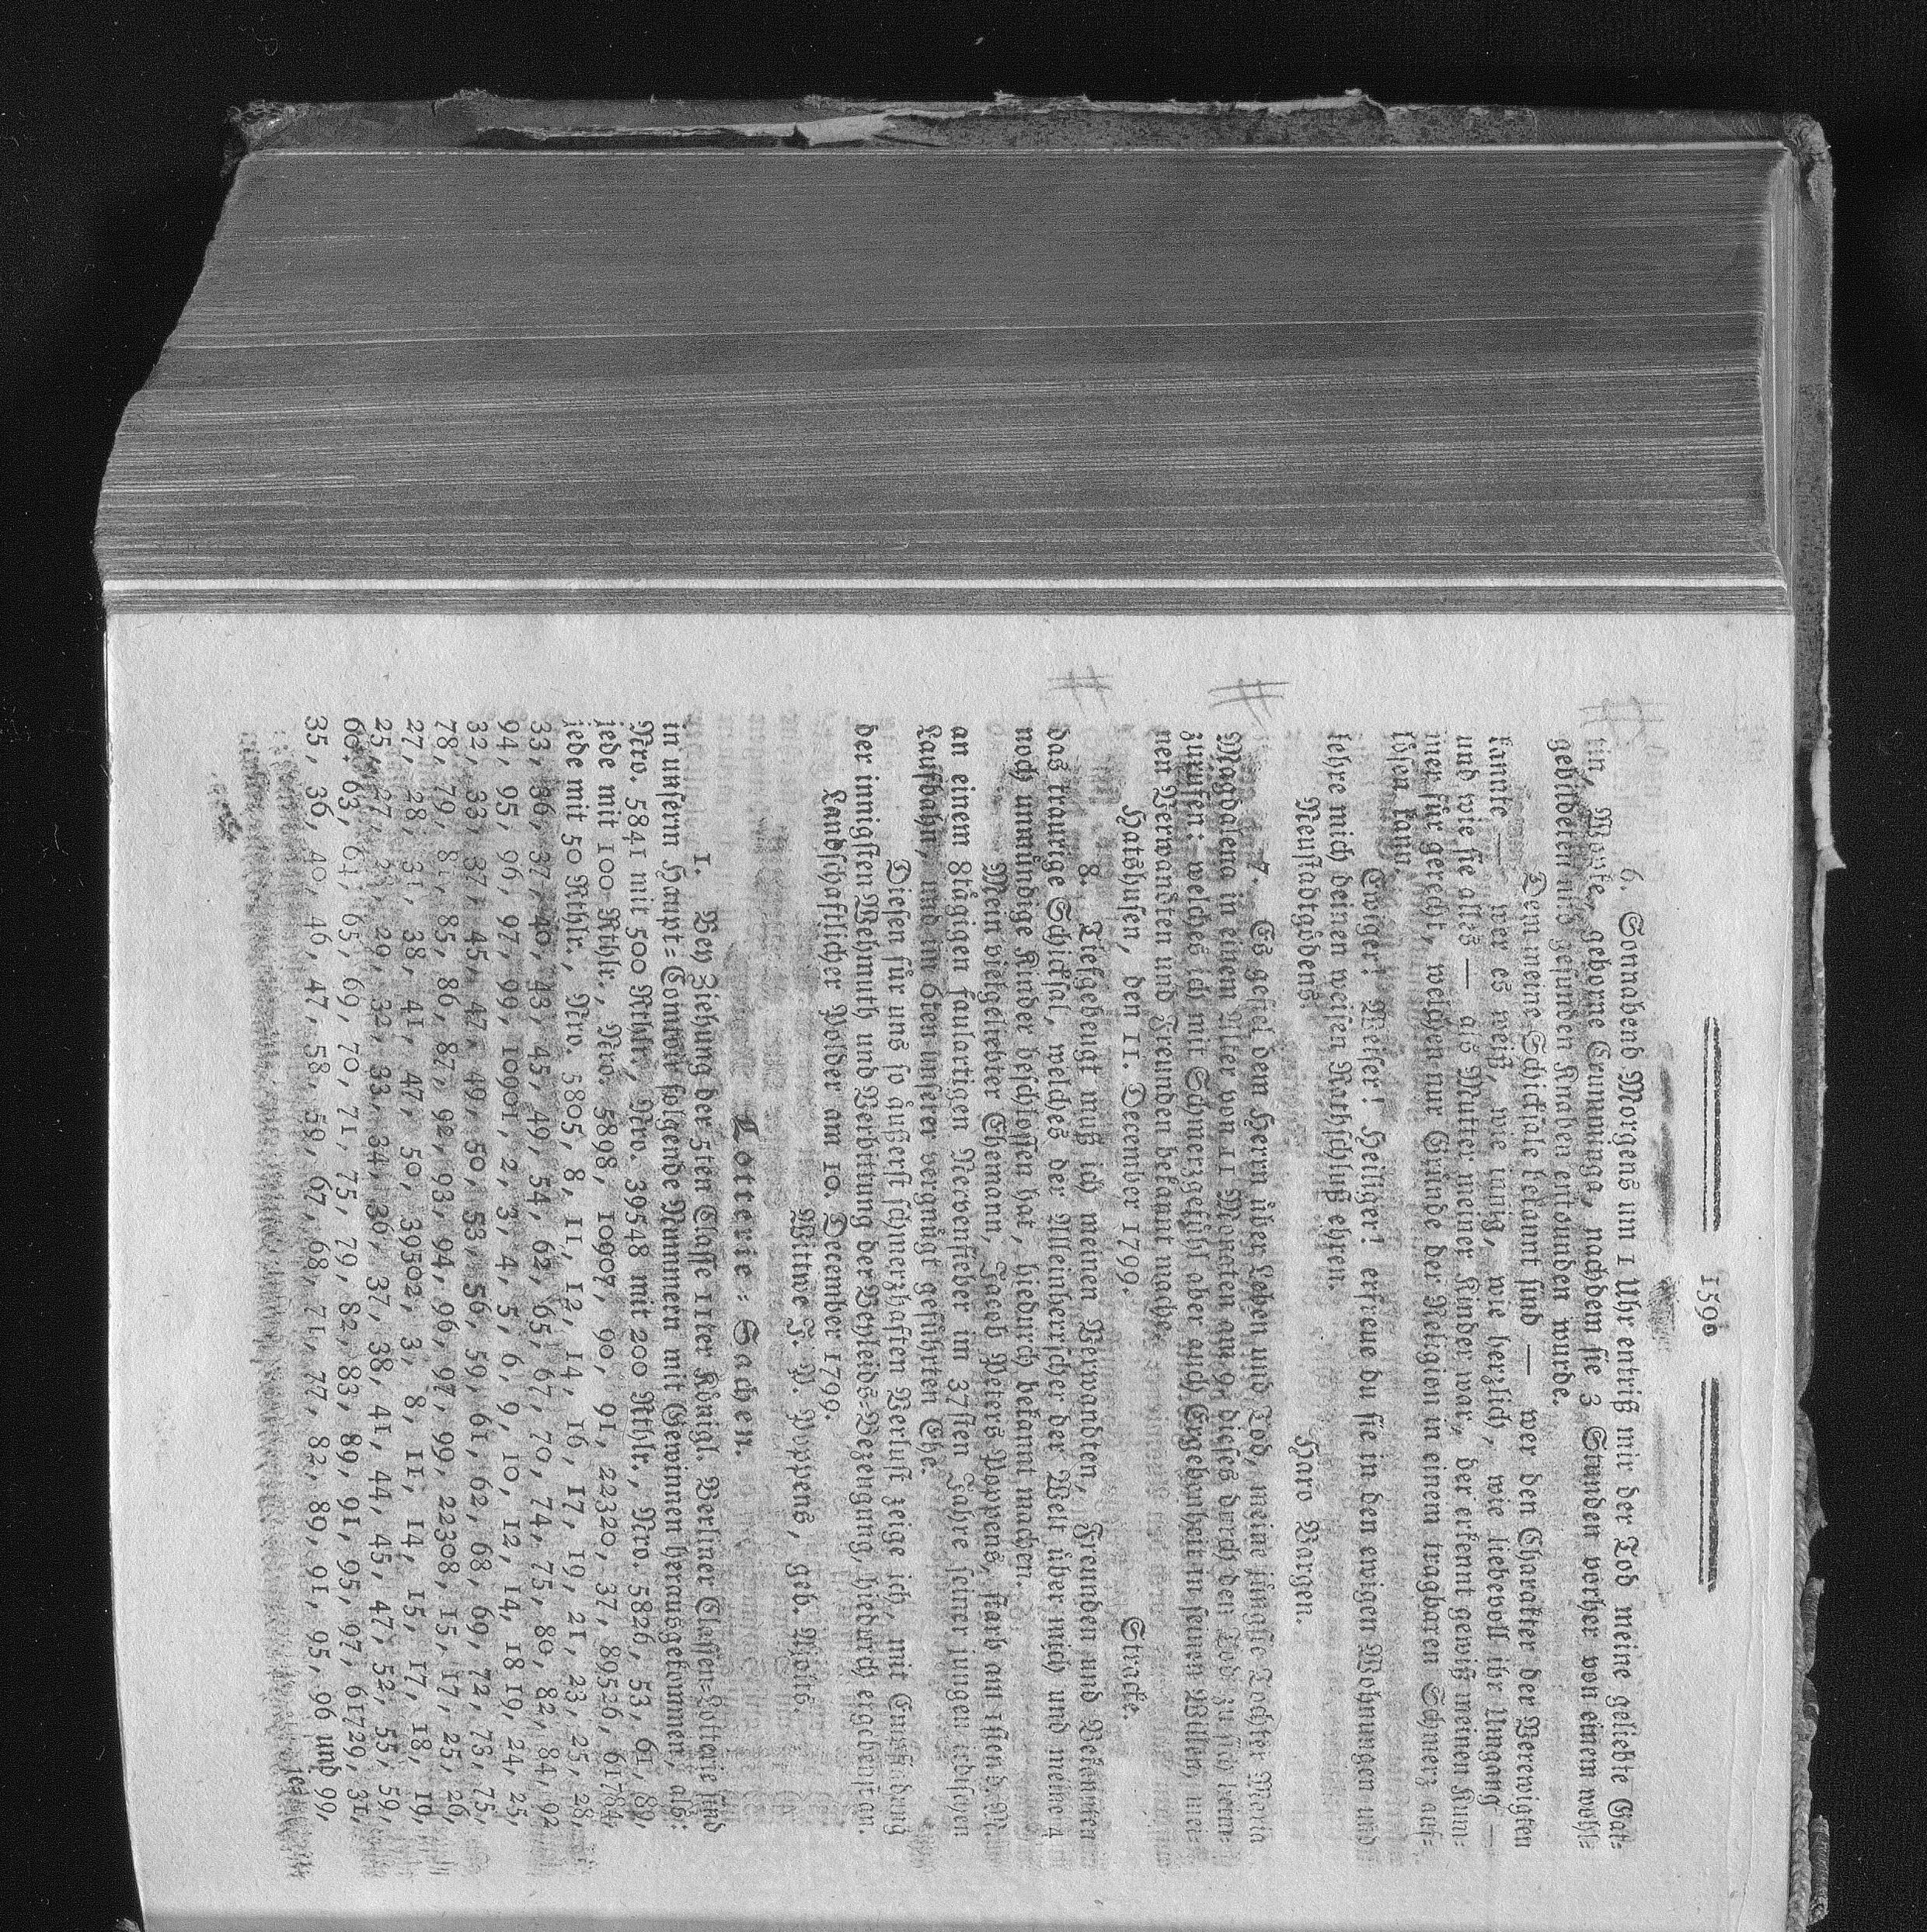 1590
6. Sonnabend Morgens um 1 Uhr entriß mir der Tod meine geliebte Gat-
tin, geborne Crumminga, nachdem sie 3 Stunden vorher von einem wohl-
gebildeten und gesunden Knaben entbunden wurde.
Denn meine Schicksale bekannt sind — wer den Charakter der Verewigten
kannte — wer es weiß, wie innig, wie herzlich, wie liebevoll ihr Umgang —
und wie sie alles — als Mutter meiner Kinder war, der erkennt gewiß meinen Kum-
mer für gerecht, welchen nur Gründe der Religion in einem tragbaren Schmerz auf-
lösen kann.
Ewiger! Weiser! Heiliger! erfreue du sie in den ewigen Wohnungen und
lehre mich deinen weisen Rathschluß ehren.
Neustadtgödens. Haro Bargen.
7. Es gefiel dem Herrn über Leben und Tod, meine jüngste Tochter Maria
Magdalena in einem Alter von 11 Monaten am 9. dieses durch den Tod zu sich heim-
zurufen: welches ich mit Schmerzgefühl aber auch Ergebenheit in seinen Willen, mei-
nen Verwandten und Freunden bekannt mache.
Hatshusen, den 11. December 1799. Stracke.
8. Tiefgebeugt muß ich meinen Verwandten, Freunden und Bekannten
das traurige Schicksal, welches der Alleinherrscher der Welt über mich und meine 4
noch unmündige Kinder beschlossen hat, hiedurch bekannt machen.
Mein vielgeliebter Ehemann, Jacob Peters Poppens, starb am 1sten d. M.
an einem 8tägigen faulartigen Nervenfieber im 37sten Jahre seiner jungen irdischen
Laufbahn, und im 6ten unserer vergnügt geführten Ehe.
Diesen für uns so äußerst schmerzhaften Verlust zeige ich, mit Empfindung
der innigsten Wehmuth und Verbittung der Beyleids-Bezeugung, hiedurch ergebenst an.
Landschaftlicher Polder am 10. December 1799.
Wittwe J. P. Poppens, geb.
Lotterie-Sachen.
1. Bey Ziehung der 5ten Classe 11ter Königl. Berliner Classen-Lotterie sind
in unserm Haupt-Comtoir folgende Nummern mit Gewinnen herausgekommen, als:
Nro. 5841 mit 500 Rthlr., Nro. 39548 mit 200 Rthlr., Nro. 5826, 53, 61, 89,
jede mit 100 Rthlr., Nro. 5898, 10907, 90, 91, 22320, 37, 89526, 61784,
jede mit 50 Rthlr., Nro. 5805, 8, 11, 12, 14, 16, 17, 19, 21, 23, 25, 28,
33, 36, 37, 40, 43, 45, 49, 54, 62, 65, 67, 70, 74, 75, 80, 82, 84, 92
94, 95, 96, 97, 99, 10901, 2, 3, 4, 5, 6, 9, 10, 12, 14, 18 19, 24, 25,
32, 33, 37, 45, 47, 49, 50, 53, 56, 59, 61, 62, 68, 69, 72, 73, 75,
78, 79, 81, 85, 86, 87, 92, 93, 94, 96, 97, 99, 22308, 15, 17, 25, 26,
27, 28, 31, 38, 41, 47, 50, 39502, 3, 8, 11, 14, 15, 17, 18, 19,
25, 27, 28, 29, 32, 33, 34, 36, 37, 38, 41, 44, 45, 47, 52, 55, 59,
60, 63, 64, 65, 69, 70, 71, 75, 79, 82, 83, 89, 91, 95, 97, 61729, 31,
35, 36, 40, 46, 47, 58, 59, 67, 68, 71, 77, 82, 89, 91, 95, 96 und 99,